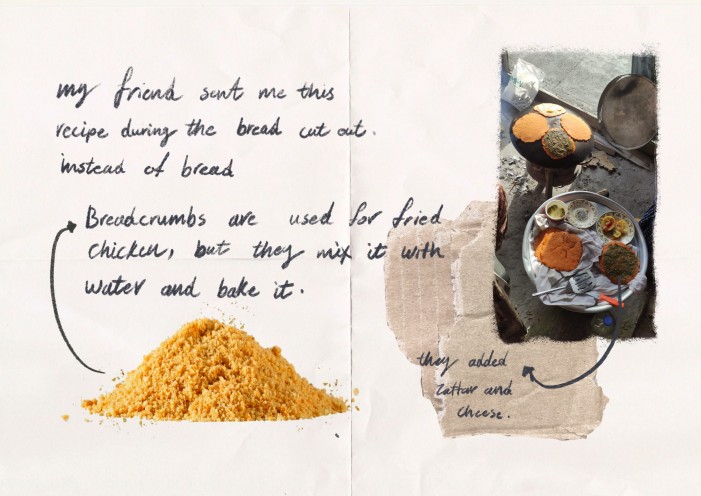 my friend sent me this
recipe during the bread cut out.
instead of bread
Breadcrumbs are used for fried
chicken, but they mix it with
water and bake it.
they added
zattar and
cheese.